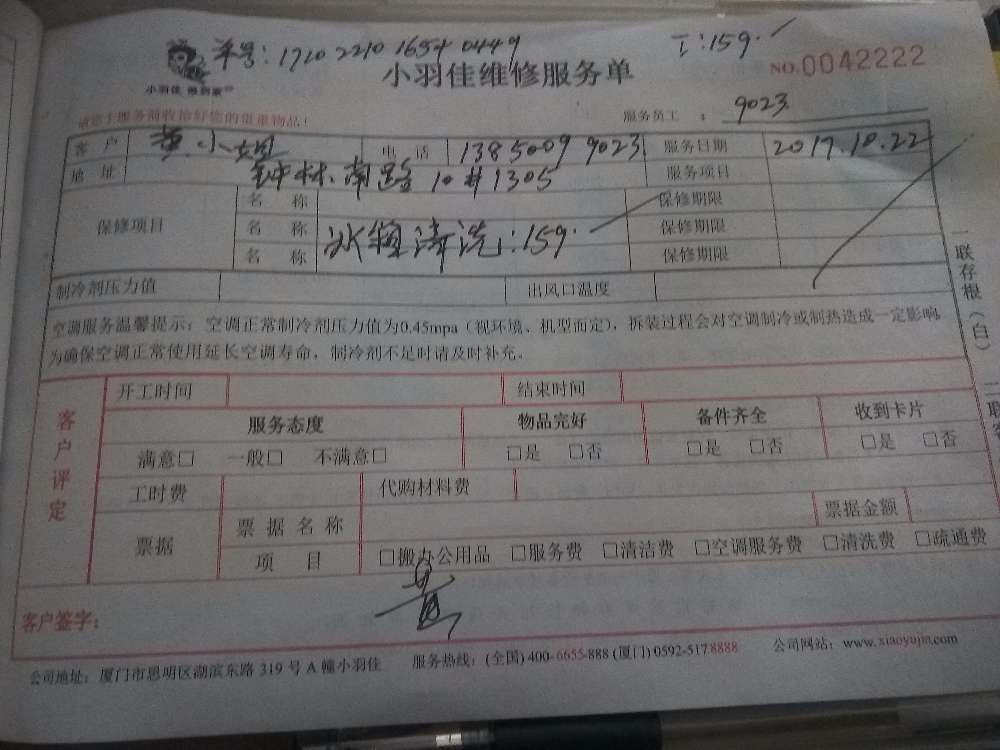 单号：1710 2210 1654 0449 工：159.
小羽佳 慢到家
小羽佳维修服务单 NO.0042222
请您于服务前收拾好您的贵重物品！ 服务员工： 9023
客户 黄小姐 电话 1385009 9023 服务日期 2017.10.22
地址 林南路10#1305 服务项目
保修项目 名称 保修期限
名称 冰箱清洗：159. 保修期限
名称 保修期限
制冷剂压力值 出风口温度
空调服务温馨提示：空调正常制冷剂压力值为0.45mpa（视环境、机型而定），拆装过程会对空调制冷或制热造成一定影响
为确保空调正常使用延长空调寿命，制冷剂不足时请及时补充。
一联存根（白）
客户评定 开工时间 结束时间
服务态度 物品完好 备件齐全 收到卡片
满意□ 一般□ 不满意□ □是 □否 □是 □否 □是 □否
工时费 代购材料费
票据 票据名称 票据金额
项目 □搬办公用品 □服务费 □清洁费 □空调服务费 □清洗费 □疏通费
客户签字： 黄
公司地址：厦门市思明区湖滨东路 319 号 A 幢小羽佳 服务热线：(全国) 400-6655-888 (厦门) 0592-5178888 公司网站：www.xiaoyujia.com